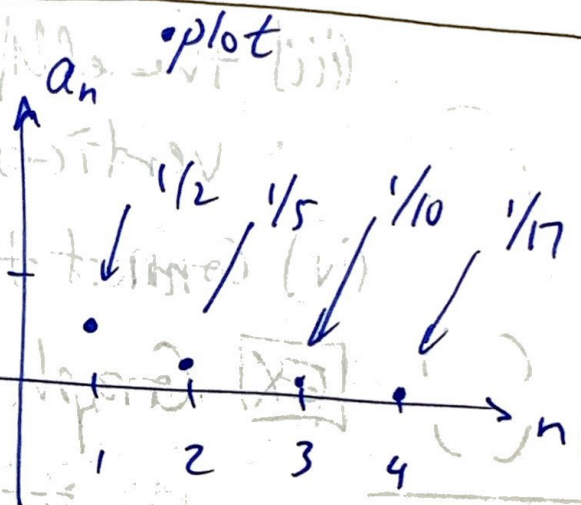 •plot
aₙ
1/2 1/5 1/10 1/17
n
1 2 3 4